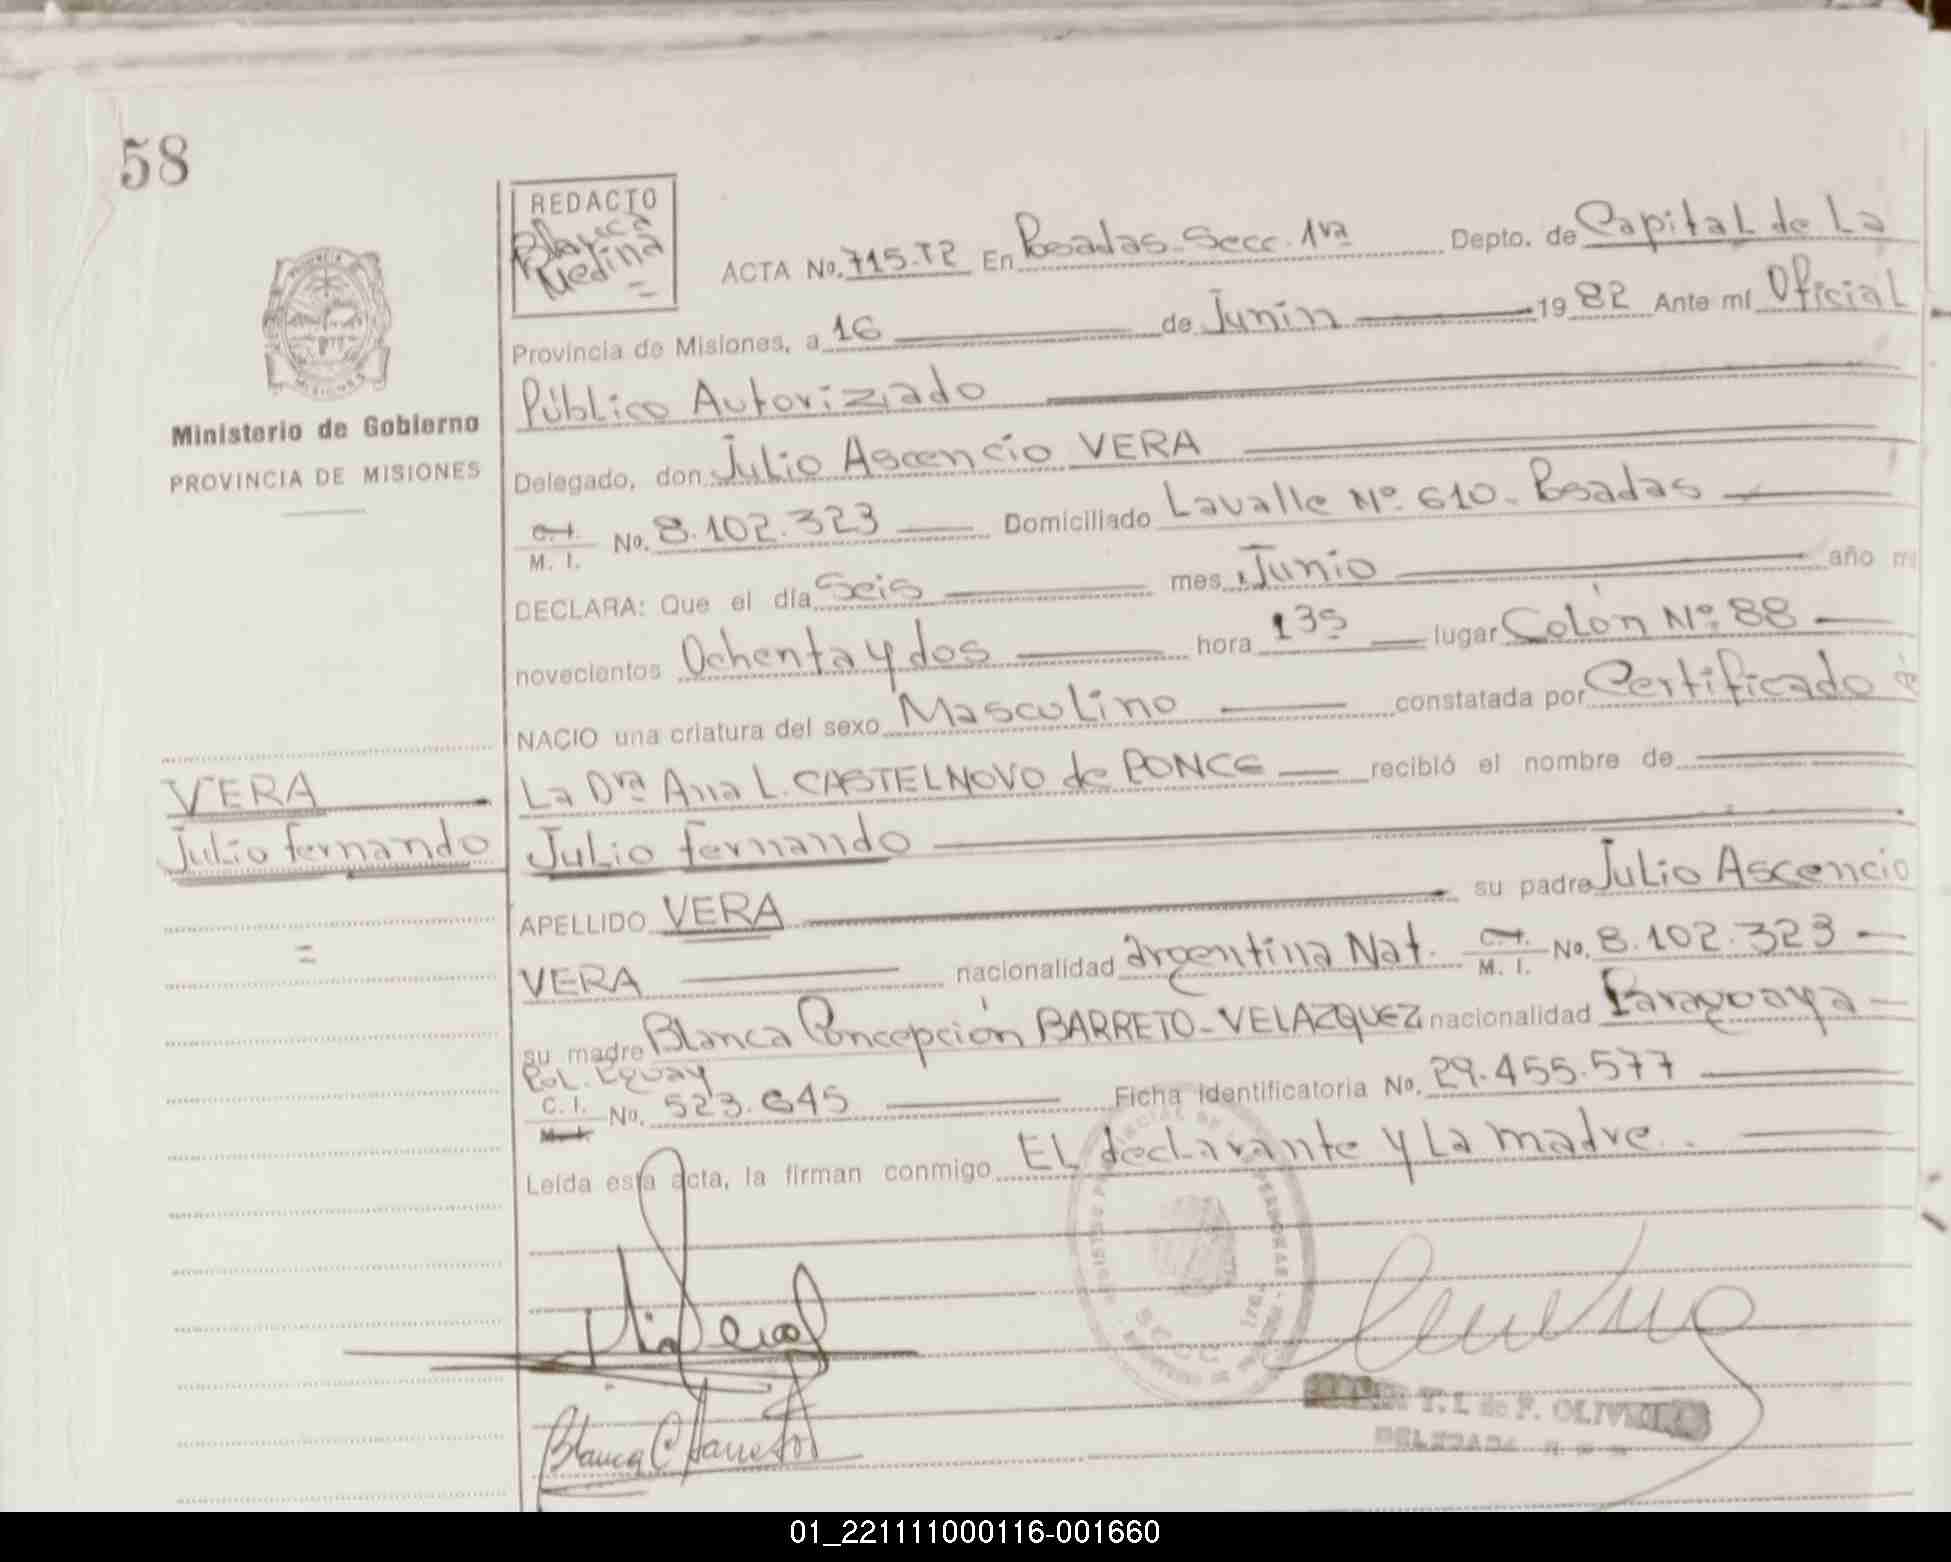 58
REDACTO
Blanca
Medina
ACTA No. 715.T2 En Posadas-Secc. 1ra Depto. de Capital de La
Provincia de Misiones, a 16 de Junin 1982 Ante mí Oficial
Público Autorizado
Ministerio de Gobierno
PROVINCIA DE MISIONES
Delegado, don Julio Ascencio VERA
C.I. M. I. No. 8.102.323 Domiciliado Lavalle Nº 610. Posadas
DECLARA: Que el día Seis mes Junio año mi
novecientos Ochenta y dos hora 13s lugar Colón Nº 88
NACIO una criatura del sexo Masculino constatada por Certificado de
La Dra Ana L. CASTELNOVO de PONCE recibió el nombre de
VERA
Julio fernando
Julio fernando
APELLIDO VERA su padre Julio Ascencio
VERA nacionalidad argentina Nat. C.I. M. I. No. 8.102.323
su madre Blanca Concepción BARRETO-VELAZQUEZ nacionalidad Paraguaya
Pol.
C. I. M. I. No. 523.645 Ficha identificatoria No. 29.455.577
Leída esta acta, la firman conmigo EL declarante y La madre.
Blanca C Barreto
T. I. de F. OLIVEIRA
DELEGADA
01_221111000116-001660